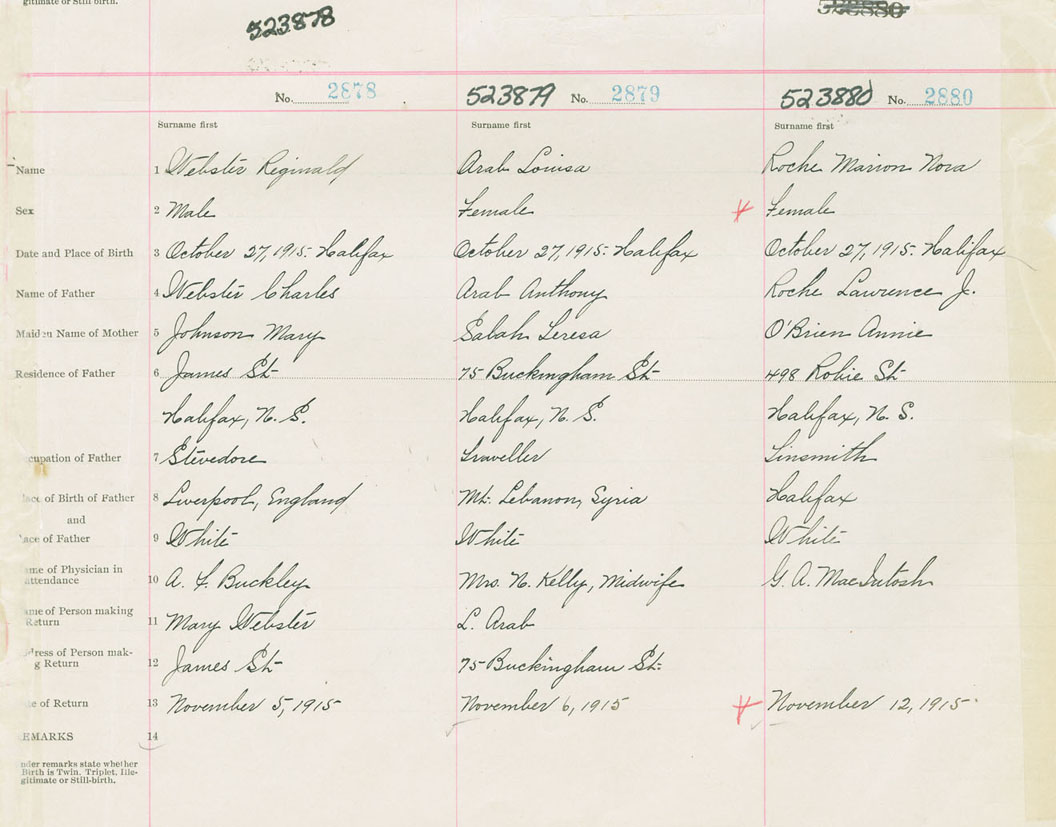 gitimate or Still birth.
523878
523880
No. 2878 523879 No. 2879 523880 No. 2880
Surname first Surname first Surname first
Name 1 Webster Reginald Arab Louisa Roche Marion Nora
Sex 2 Male Female Female
Date and Place of Birth 3 October 27, 1915. Halifax October 27, 1915. Halifax October 27, 1915. Halifax
Name of Father 4 Webster Charles Arab Anthony Roche Lawrence J.
Maiden Name of Mother 5 Johnson Mary Salah Teresa O'Brien Annie
Residence of Father 6 James St 75 Buckingham St 498 Robie St
Halifax, N. S. Halifax, N. S. Halifax, N. S.
cupation of Father 7 Stevedore Traveller Tinsmith
lace of Birth of Father 8 Liverpool, England Mt. Lebanon, Syria Halifax
and
ace of Father 9 White White White
me of Physician in
attendance 10 A. F. Buckley Mrs. N. Kelly, Midwife G. A. MacIntosh
ame of Person making
Return 11 Mary Webster L. Arab
dress of Person mak-
g Return 12 James St 75 Buckingham St.
e of Return 13 November 5, 1915 November 6, 1915 November 12, 1915.
EMARKS 14
nder remarks state whether
Birth is Twin, Triplet, Ille-
gitimate or Still-birth.